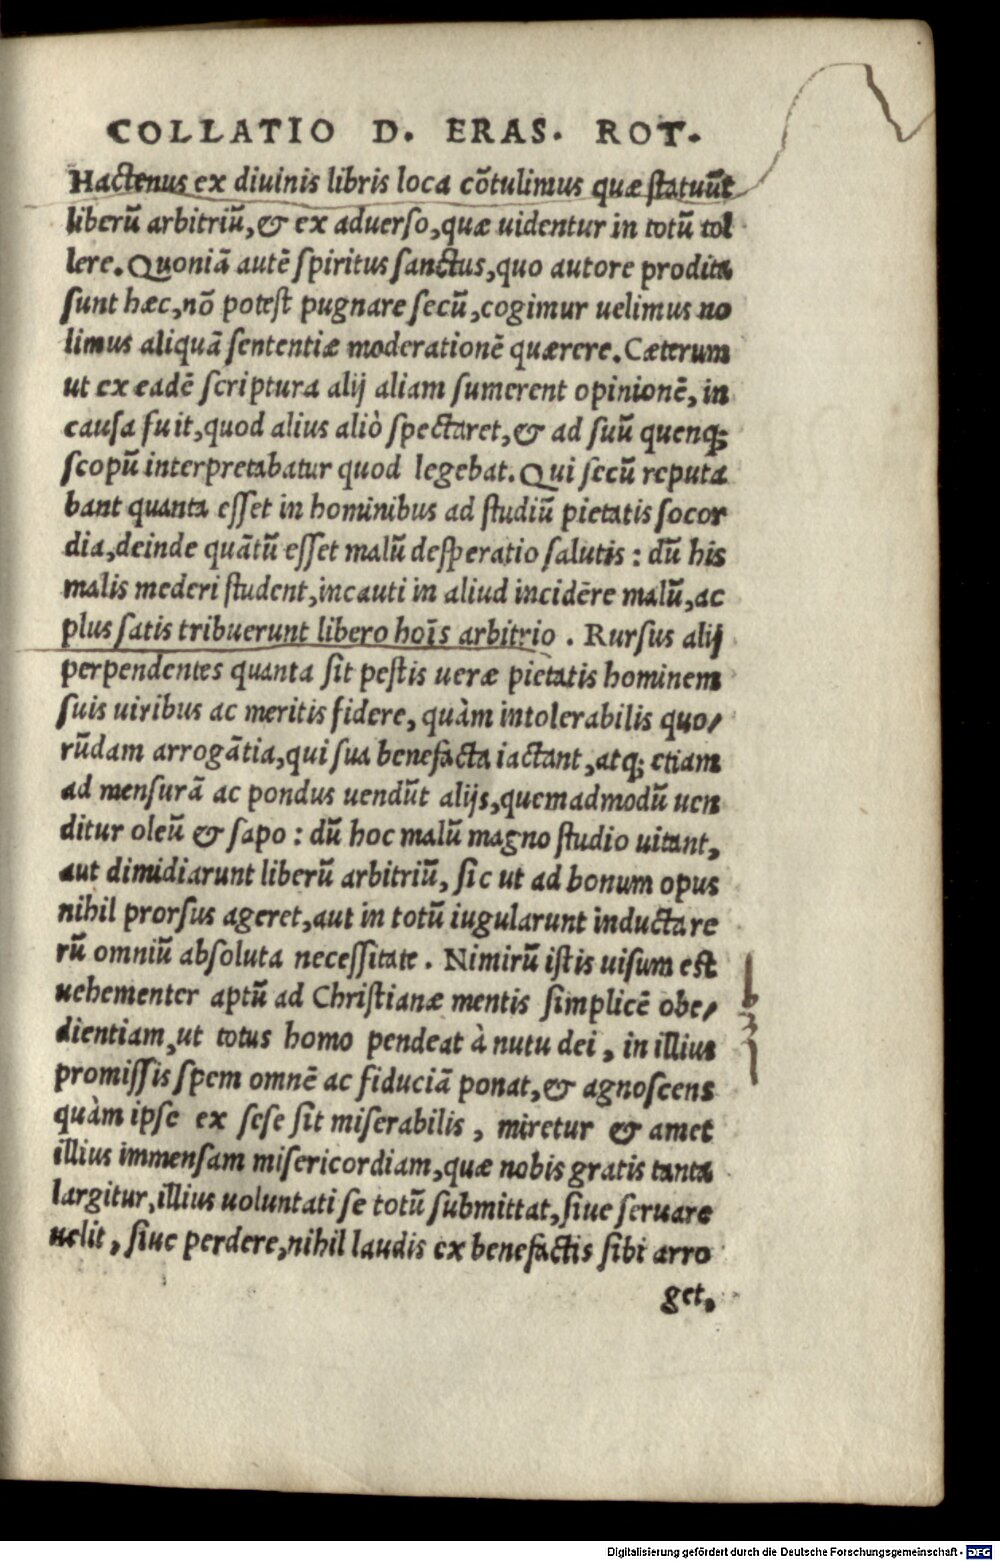 COLLATIO D. ERAS. ROT.
Hactenus ex diuinis libris loca cõtulimus quæ statuũt
liberũ arbitriũ, & ex aduerso, quæ uidentur in totũ tol
lere. Quoniã autē spiritus sanctus, quo autore prodita
sunt hæc, nõ potest pugnare secũ, cogimur uelimus no
limus aliquã sententiæ moderationē quærere. Cæterum
ut ex eadē scriptura alij aliam sumerent opinionē, in
causa fuit, quod alius aliò spectaret, & ad suũ quenq;
scopũ interpretabatur quod legebat. Qui secũ reputa
bant quanta esset in hominibus ad studiũ pietatis socor
dia, deinde quãtũ esset malũ desperatio salutis: dũ his
malis mederi student, incauti in aliud incidēre malũ, ac
plus satis tribuerunt libero hoīs arbitrio. Rursus alij
perpendentes quanta sit pestis ueræ pietatis hominem
suis uiribus ac meritis fidere, quàm intolerabilis quo/
rũdam arrogãtia, qui sua benefacta iactant, atq; etiam
ad mensurã ac pondus uendũt alijs, quemadmodũ uen
ditur oleũ & sapo: dũ hoc malũ magno studio uitant,
aut dimidiarunt liberũ arbitriũ, sic ut ad bonum opus
nihil prorsus ageret, aut in totũ iugularunt inducta re
rũ omniũ absoluta necessitate. Nimirũ istis uisum est
uehementer aptũ ad Christianæ mentis simplicē obe/
dientiam, ut totus homo pendeat à nutu dei, in illius
promissis spem omnē ac fiduciã ponat, & agnoscens
quàm ipse ex sese sit miserabilis, miretur & amet
illius immensam misericordiam, quæ nobis gratis tanta
largitur, illius uoluntati se totũ submittat, siue seruare
uelit, siue perdere, nihil laudis ex benefactis sibi arro
get,
Digitalisierung gefördert durch die Deutsche Forschungsgemeinschaft - DFG